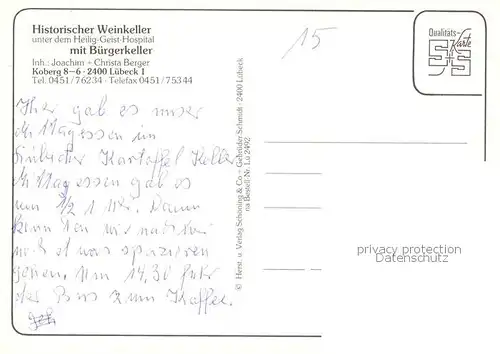 Historischer Weinkeller
unter dem Heilig-Geist-Hospital
mit Bürgerkeller
Inh.: Joachim + Christa Berger
Koberg 8-6 · 2400 Lübeck 1
Tel. 0451/76234 · Telefax 0451/75344
15
Qualitäts-
Karte
S+S
Hier gab es unser
Mittagessen im
Kartoffel Keller
Mittagessen gab es
um 1/2 1 Uhr. Dann
konnten wir
noch etwas spazieren
gehen. Um 14,30 fuhr
der Bus zum Kaffee.
© Herst. u. Verlag Schöning & Co + Gebrüder Schmidt · 2400 Lübeck
na Bestell-Nr. Lü 2492
privacy protection
Datenschutz